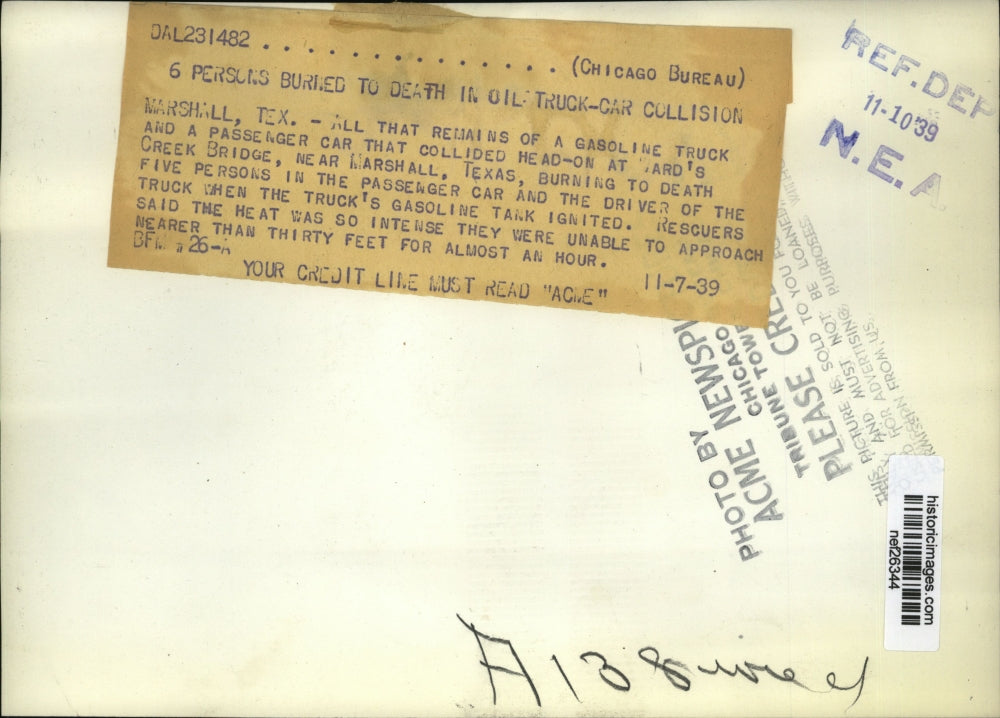 DAL231482 . . . . . . . . . . . . . . (CHICAGO BUREAU)
6 PERSONS BURNED TO DEATH IN OIL TRUCK-CAR COLLISION
MARSHALL, TEX. - ALL THAT REMAINS OF A GASOLINE TRUCK
AND A PASSENGER CAR THAT COLLIDED HEAD-ON AT WARD'S
CREEK BRIDGE, NEAR MARSHALL, TEXAS, BURNING TO DEATH
FIVE PERSONS IN THE PASSENGER CAR AND THE DRIVER OF THE
TRUCK WHEN THE TRUCK'S GASOLINE TANK IGNITED. RESCUERS
SAID THE HEAT WAS SO INTENSE THEY WERE UNABLE TO APPROACH
NEARER THAN THIRTY FEET FOR ALMOST AN HOUR.
26-A
YOUR CREDIT LINE MUST READ "ACME" 11-7-39
REF. DEP
11-10'39
N.E.A.
PHOTO BY NEWSPI
ACME
CHICAGO
TRIBUNE TOWE
PLEASE CRE
THIS PICTURE IS SOLD TO YOU FO
AND MUST NOT BE LOANED,
FOR ADVERTISING PURPOSES
FROM US.
historicimages.com
nef26344
A 13